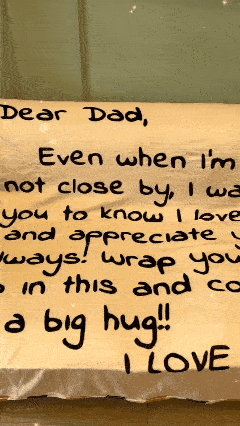 Dear Dad,
Even when I'm
not close by, I wa
you to know I love
and appreciate y
lways! Wrap you
in this and co
a big hug!!
I LOVE